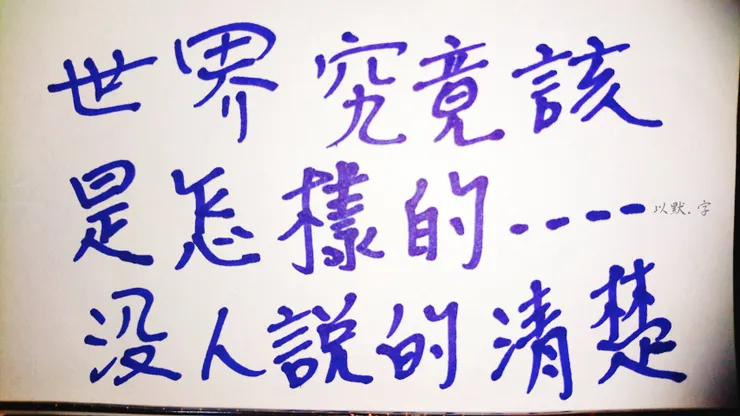 世界究竟該
是怎樣的----
以默.字
没人説的清楚